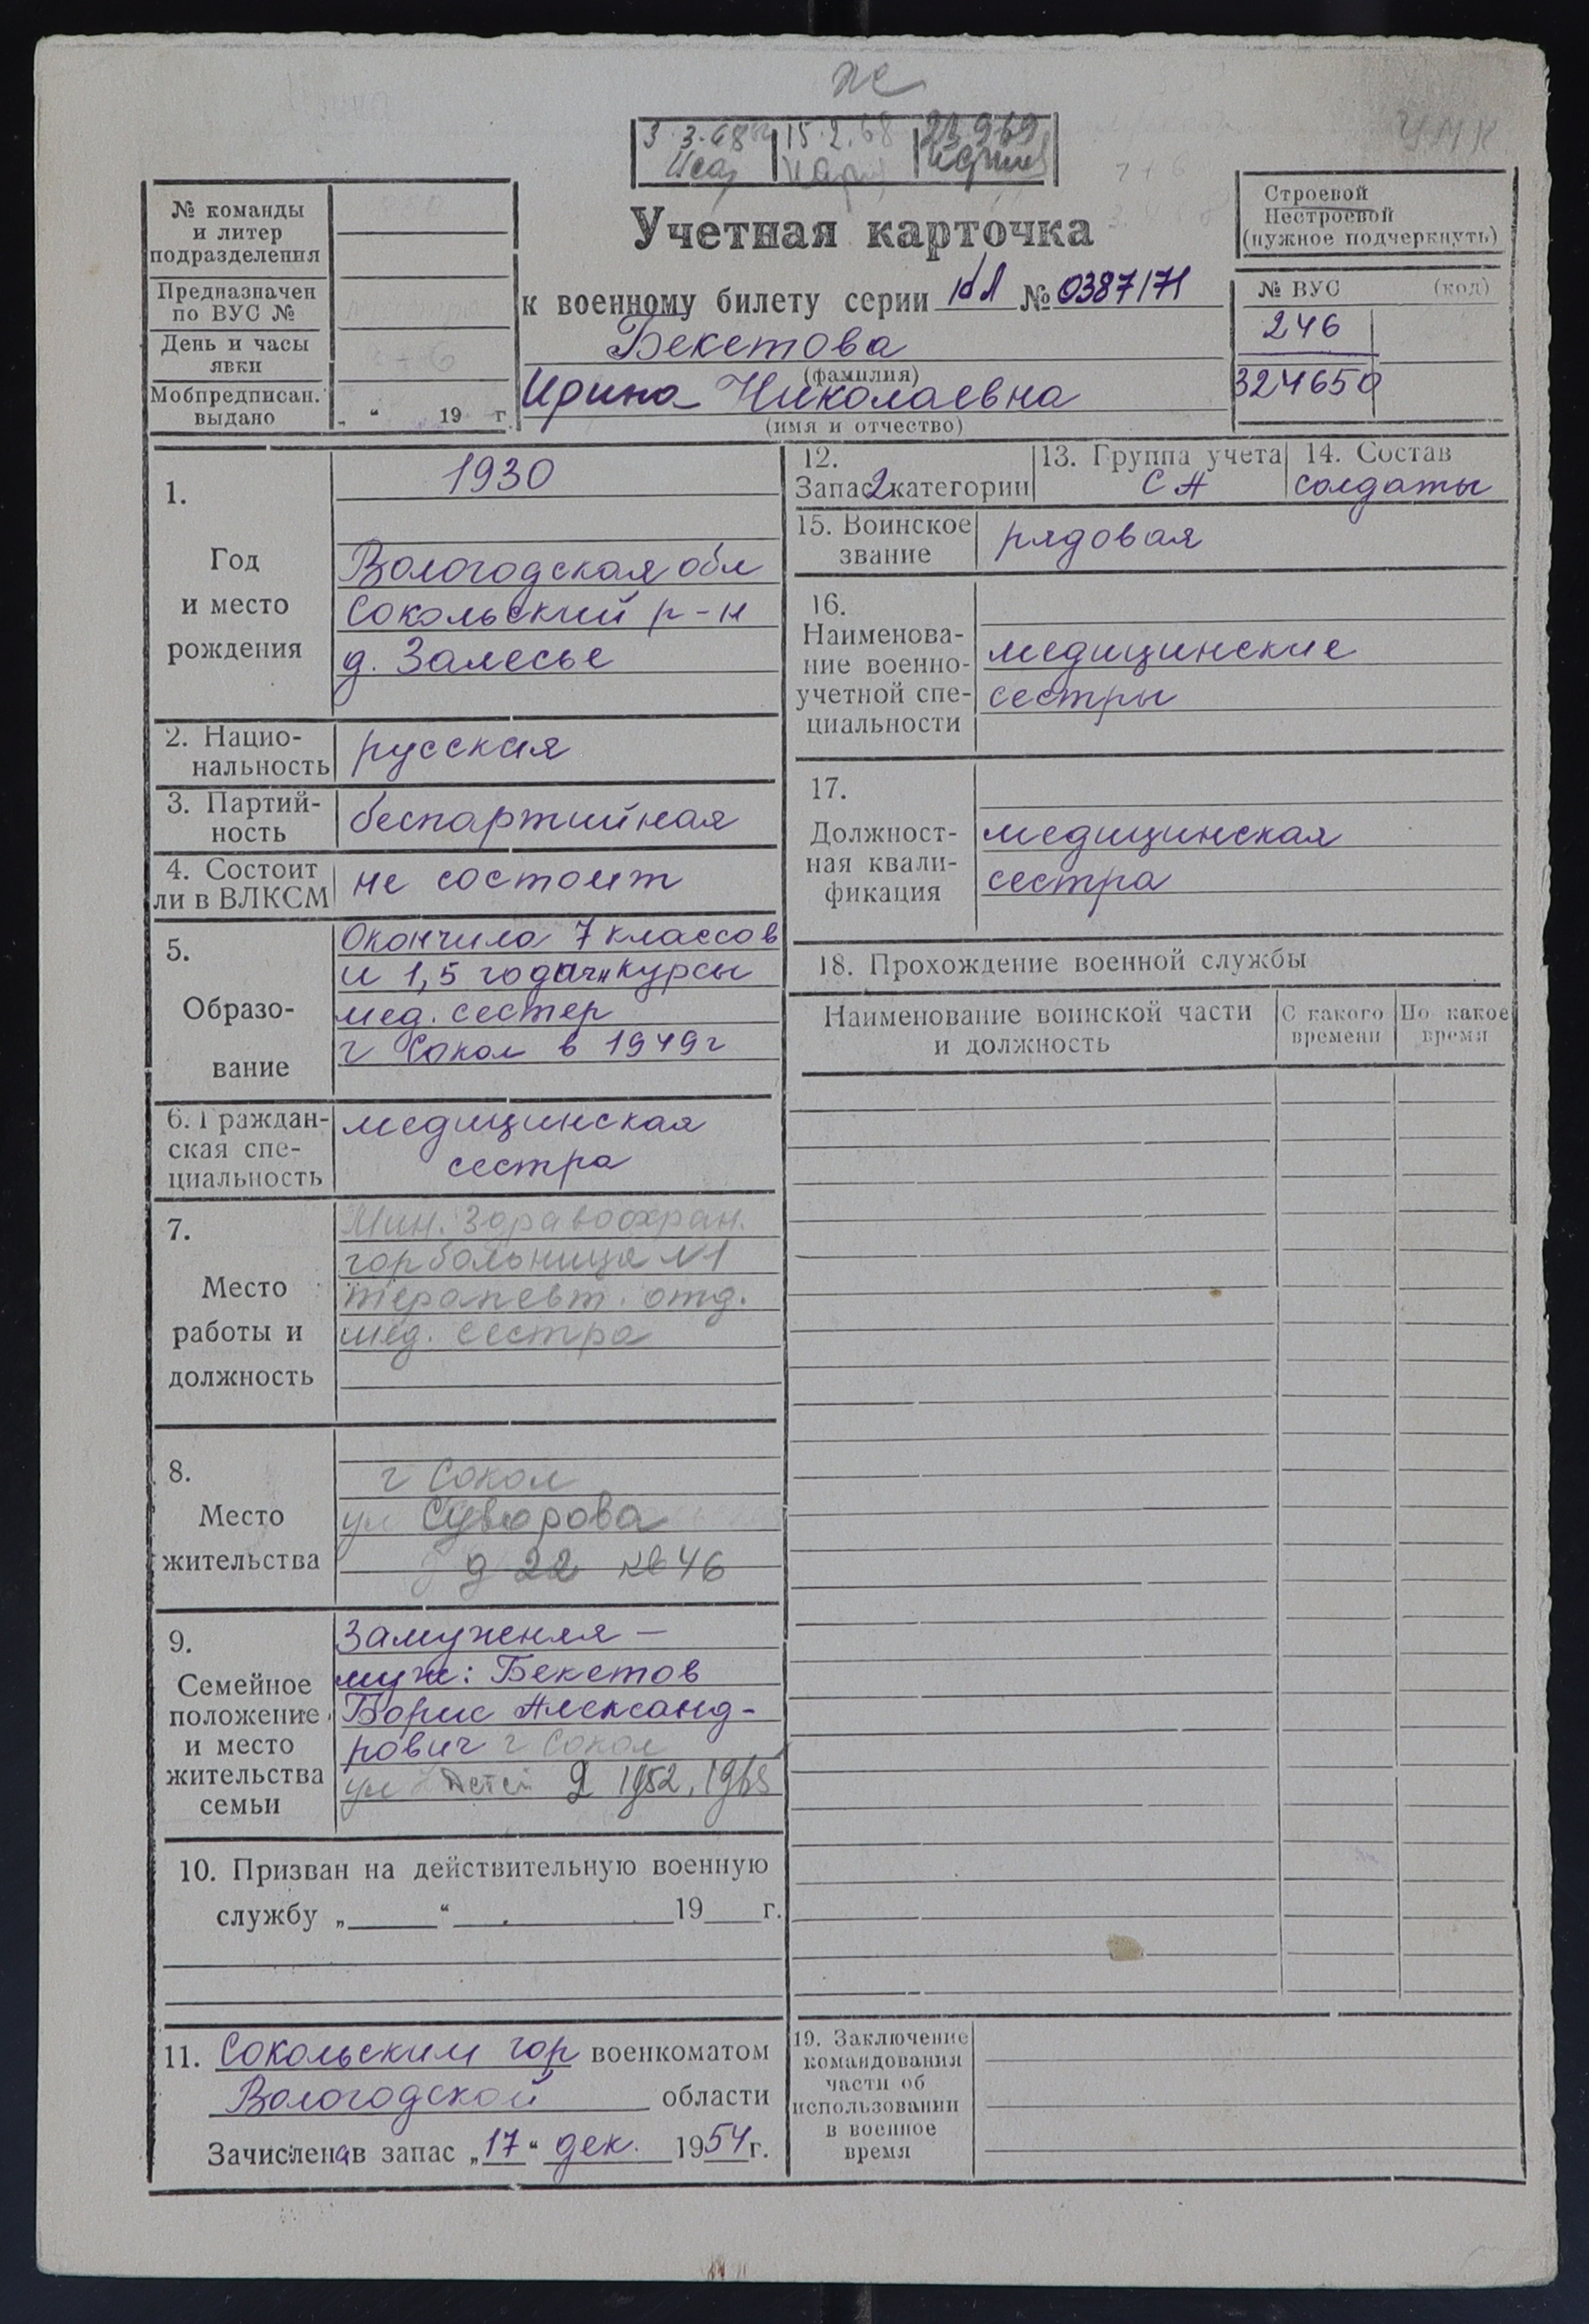 же
3.3.68 15.2.68 23.9.69
УМК
Строевой
Нестроевой
(нужное подчеркнуть)
№ команды
и литер
подразделения
Предназначен
по ВУС №
День и часы
явки
Мобпредписан.
выдано
„ “ 19 г.
Учетная карточка
к военному билету серии № 0387171
Бекетова
(фамилия)
Ирина Николаевна
(имя и отчество)
№ ВУС (код)
246
324650
1.
Год
и место
рождения
1930
Вологодская обл
Сокольский р-н
д. Залесье
2. Нацио-
нальность
русская
3. Партий-
ность
беспартийная
4. Состоит
ли в ВЛКСМ
не состоит
5.
Образо-
вание
Окончила 7 классов
и 1,5 годичн курсы
мед. сестер
г Сокол в 1949г
6. Граждан-
ская спе-
циальность
медицинская
сестра
7.
Место
работы и
должность
Мин. Здравоохран.
горбольница №1
терапевт. отд.
мед. сестра
8.
Место
жительства
г Сокол
ул Суворова
д 22 кв 46
9.
Семейное
положение
и место
жительства
семьи
Замужняя —
муж: Бекетов
Борис Александ-
рович г Сокол
ул детей 2 1952, 1968
10. Призван на действительную военную
службу „ “ 19 г.
11. Сокольским гор военкоматом
Вологодской области
Зачислена в запас „17“ дек. 1954 г.
12.
Запас 2 категории
13. Группа учета
СА
14. Состав
солдаты
15. Воинское
звание
рядовая
16.
Наименова-
ние военно-
учетной спе-
циальности
медицинские
сестры
17.
Должност-
ная квали-
фикация
медицинская
сестра
18. Прохождение военной службы
Наименование воинской части
и должность
С какого
времени
По какое
время
19. Заключение
командования
части об
использовании
в военное
время